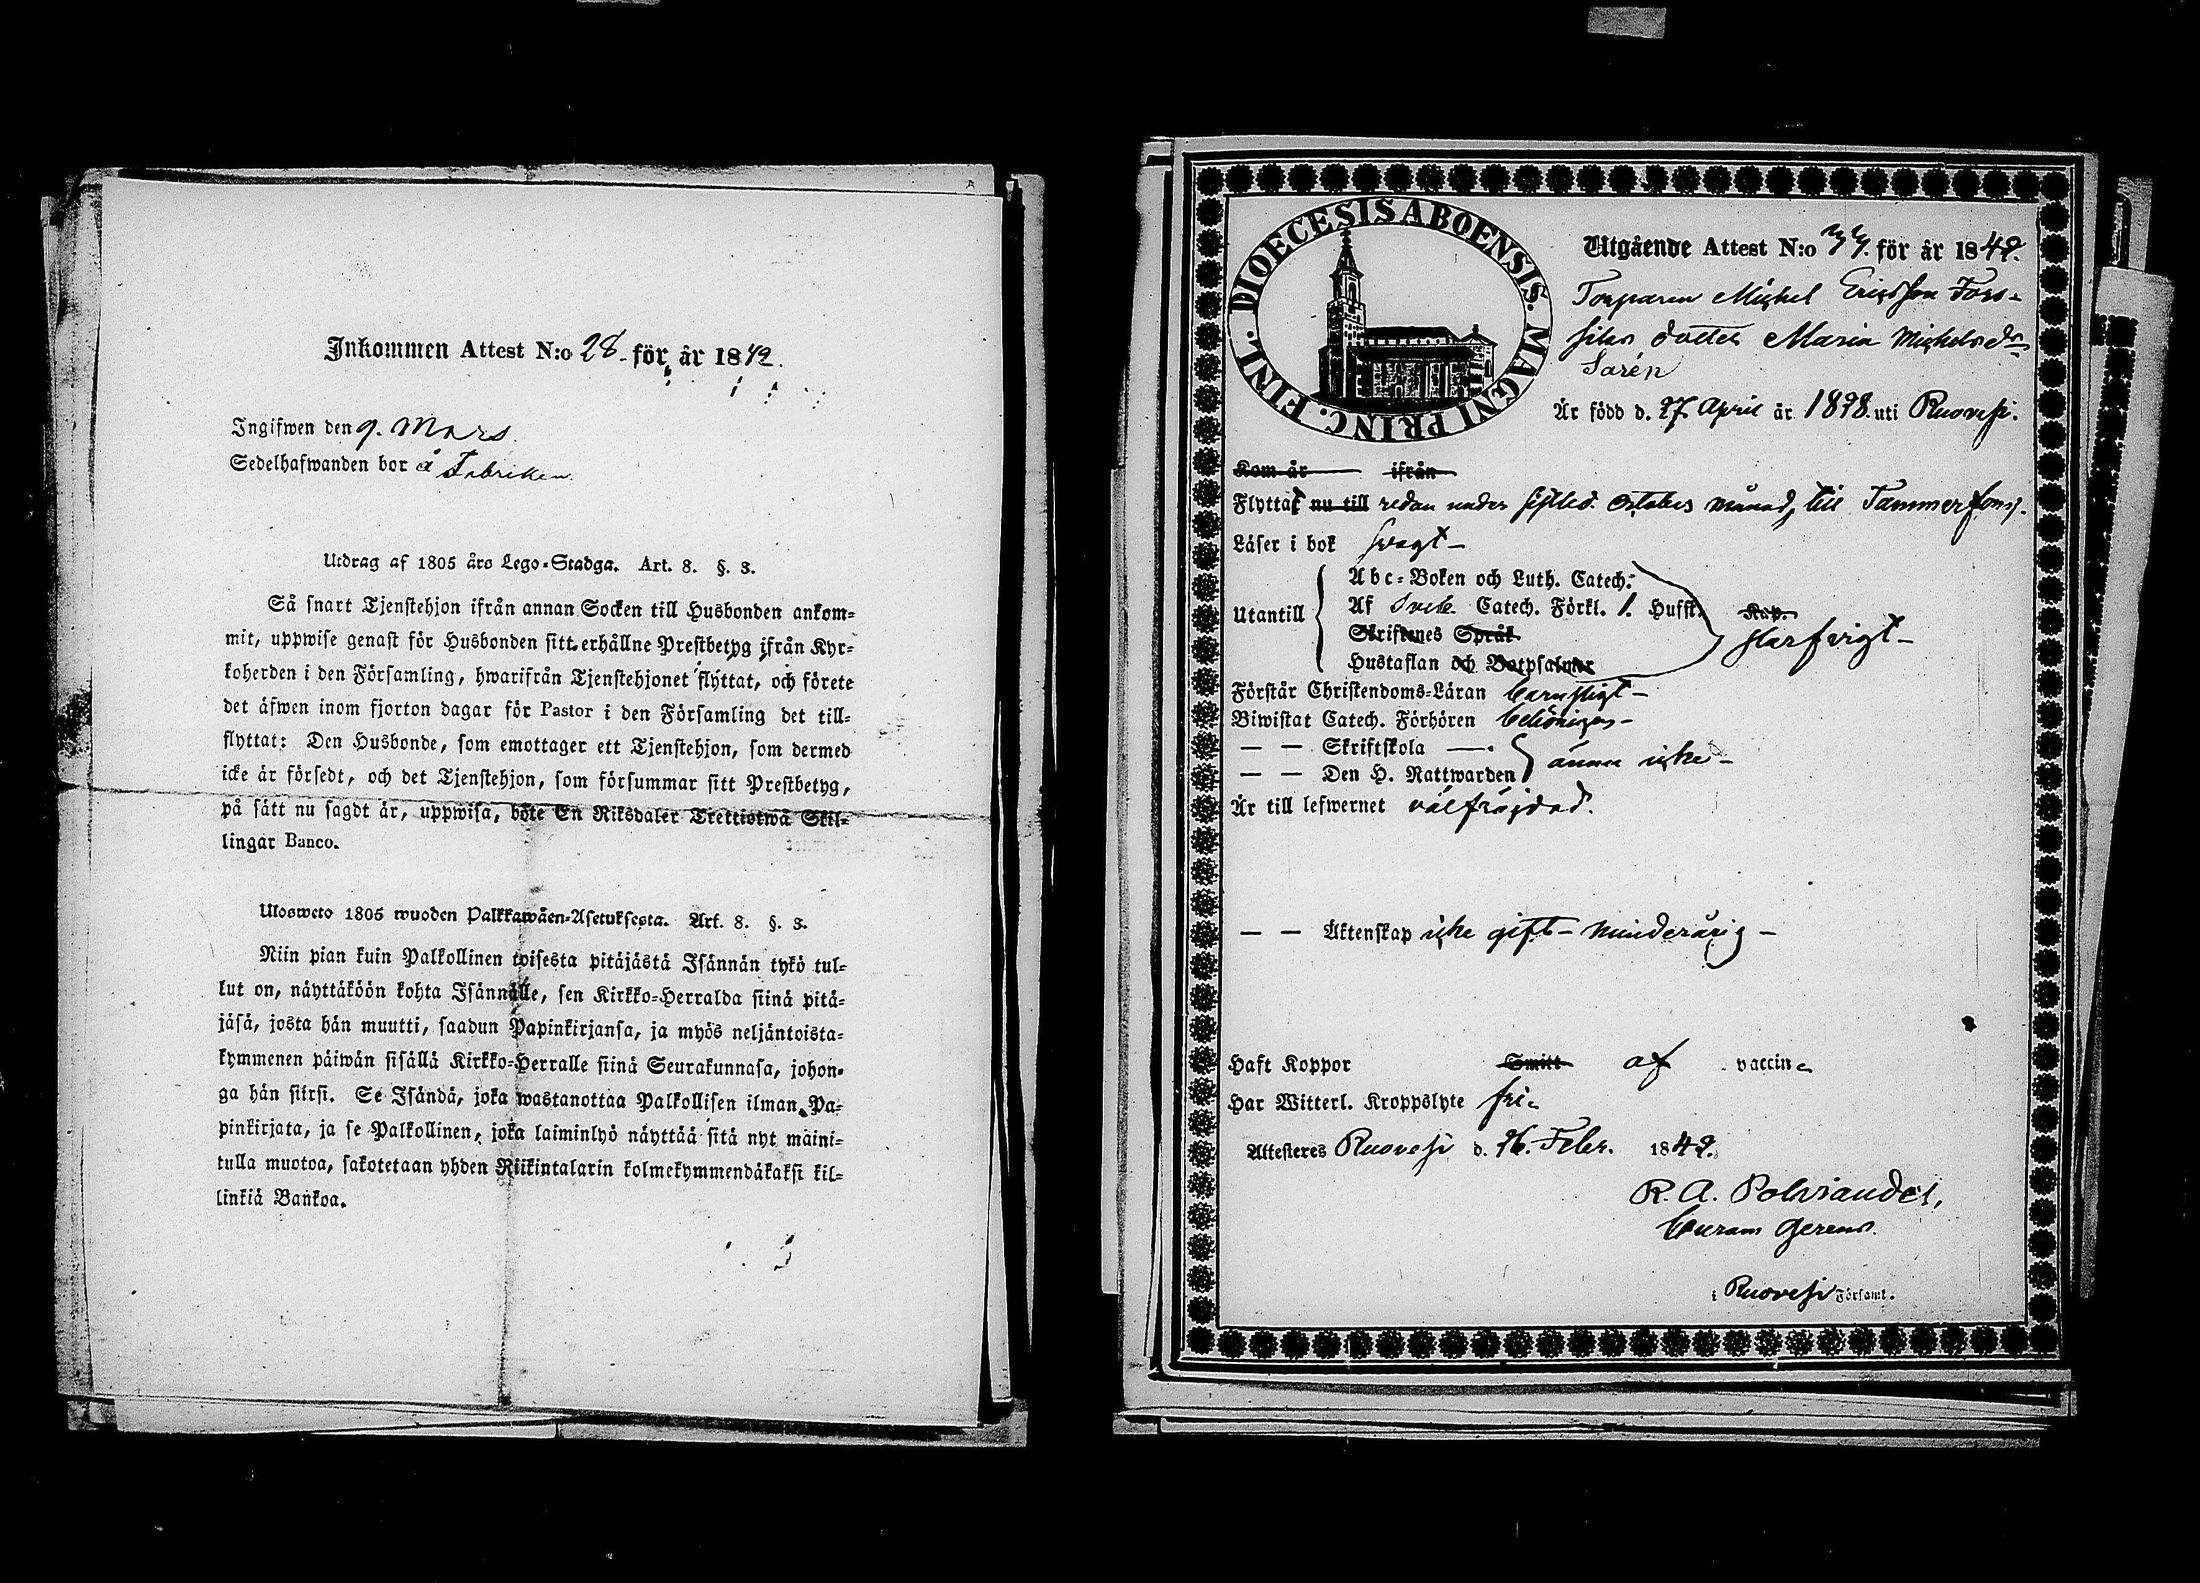 Inkommen Attest N:o 28. för år 1842.
Ingifwen den 9. Mars.
Sedelhafwanden bor å Fabriken
Utdrag af 1805 års Lego-Stadga. Art. 8. §. 3.
Så snart Tjenstehjon ifrån annan Socken till Husbonden ankom-
mit, uppwise genast för Husbonden sitt erhållne Prestbetyg ifrån Kyr-
koherden i den Församling, hwarifrån Tjenstehjonet flyttat, och förete
det äfwen inom fjorton dagar för Pastor i den Församling det till-
flyttat: Den Husbonde, som emottager ett Tjenstehjon, som dermed
icke är försedt, och det Tjenstehjon, som försummar sitt Prestbetyg,
på sätt nu sagdt är, uppwisa, böte En Riksdaler Trettiotwå Skil-
lingar Banco.
Ulosweto 1805 wuoden Palkkawäen-Asetuksesta. Art. 8. §. 3.
Niin pian kuin Palkollinen toisesta pitäjästä Isännän tykö tul-
lut on, näyttäköön kohta Isännälle, sen Kirkko-Herralda siinä pitä-
jäsä, josta hän muutti, saadun Papinkirjansa, ja myös neljäntoista-
kymmenen päiwän sisällä Kirkko-Herralle siinä Seurakunnasa, johon-
ga hän siirsi. Se Isändä, joka wastanottaa Palkollisen ilman Pa-
pinkirjata, ja se Palkollinen, joka laiminlyö näyttää sitä nyt maini-
tulla muotoa, sakotetaan yhden Riikintalarin kolmekymmendäkaksi kil-
linkiä Bankoa.
DIOECESIS ABOENSIS. MAGNI PRINC. FINL.
Utgående Attest N:o 33. för år 1842.
Torparen Michel Ericsson Fors-
silas dotter Maria Michelsdr
Sarén
Är född d. 27. April år 1828. uti Ruovesi.
Kom år ifrån
Flyttat nu till redan under sistled. October månad, till Tammerfors.
Läser i bok svagt-
Utantill
Abc-Boken och Luth. Catech:
Af Sveb. Catech. Förkl. 1. Hufst. Kap.
Skriftenes Språk
Hustaflan och Botpsalmer
Förstår Christendoms-Läran barnsligt-
Biwistat Catech. Förhören behörigen-
— — Skriftskola —.
— — Den H. Nattwarden ännu icke-
Är till lefwernet välfräjdad.
— — Äktenskap icke gift- minderårig-
Haft Koppor Smitt af vaccine
Har Witterl. Kroppslyte fri.
Attesteres Ruovesi d. 26. Febr. 1842.
R. A. Polviander,
Curam gerens.
i Ruovesi Församl.